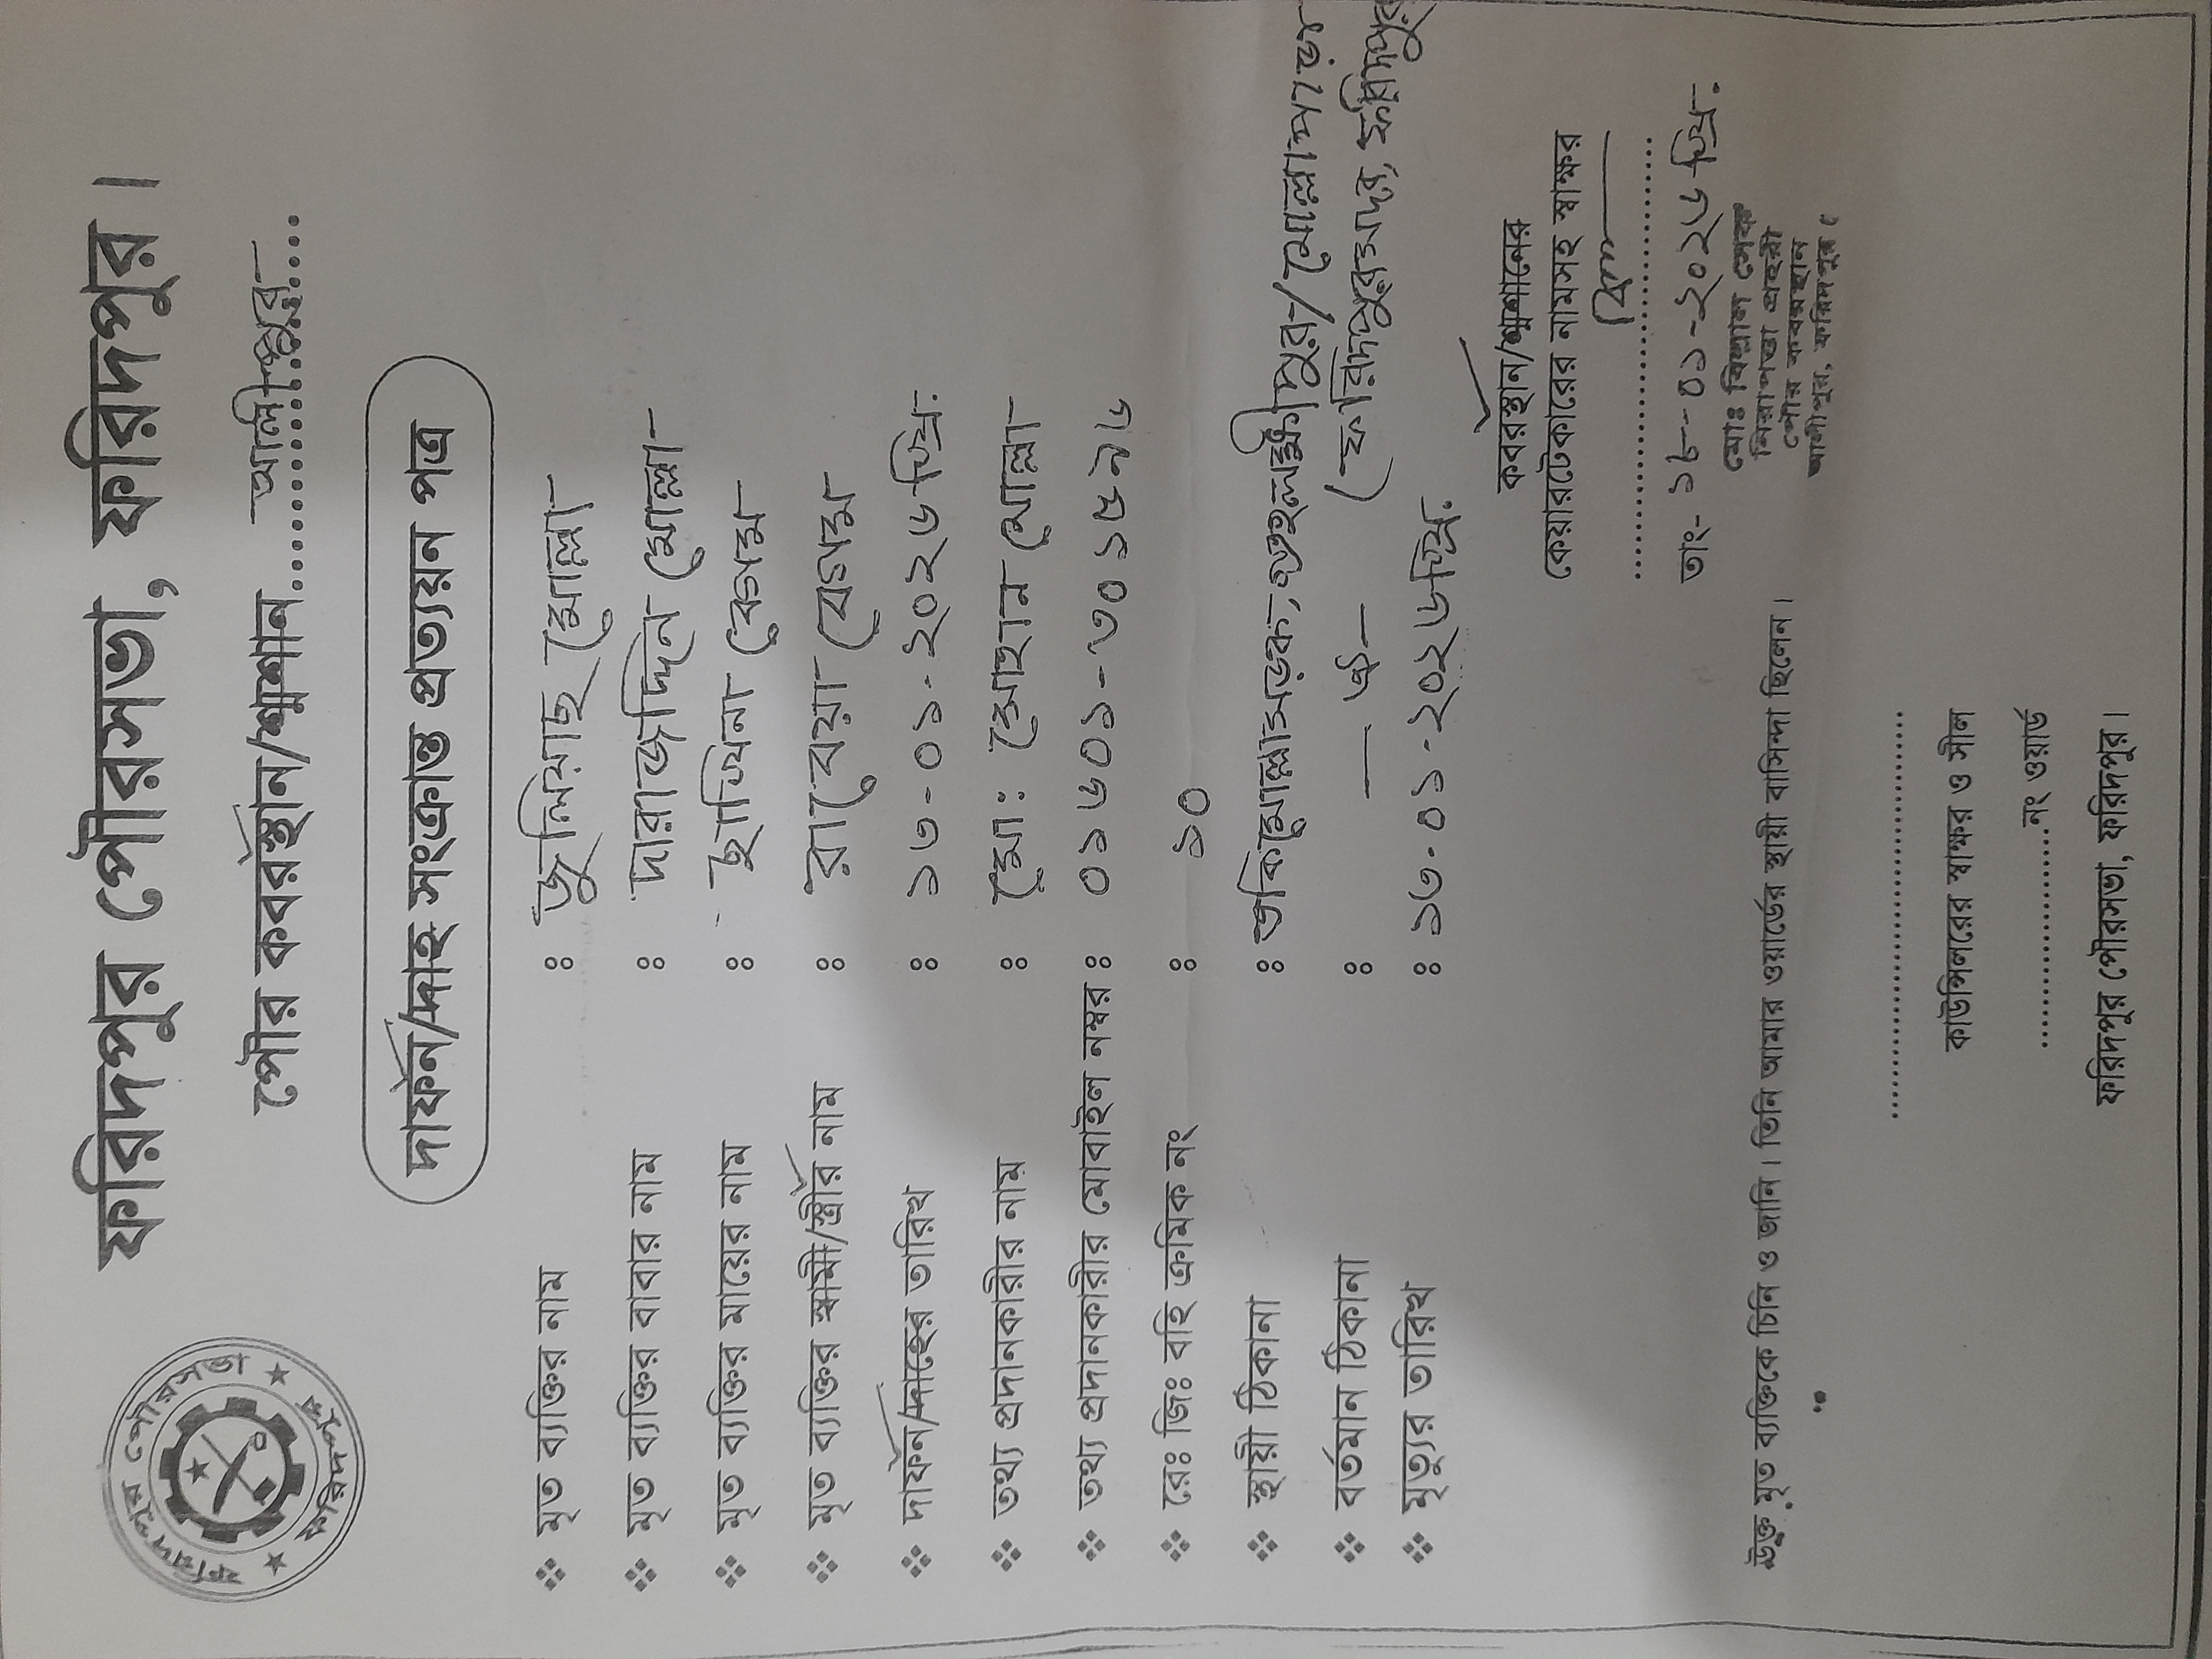 ফরিদপুর পৌরসভা, ফরিদপুর।
ফরিদপুর পৌরসভা
ফরিদপুর
পৌর কবরস্থান/শ্মশান..........আলীপুর..........
দাফন/দাহ সংক্রান্ত প্রত্যয়ন পত্র
❖ মৃত ব্যক্তির নাম : জুলিয়াছ মোল্লা
❖ মৃত ব্যক্তির বাবার নাম : দারাজদ্দিন মোল্লা
❖ মৃত ব্যক্তির মায়ের নাম : ছুমিনা বেগম
❖ মৃত ব্যক্তির স্বামী/স্ত্রীর নাম : রাবেয়া বেগম
❖ দাফন/দাহের তারিখ : ১৩-০১-২০২৬ খ্রি:
❖ তথ্য প্রদানকারীর নাম : মো: সোহান মোল্লা
❖ তথ্য প্রদানকারীর মোবাইল নম্বর : ০১৬০১-৩০১৫৯৬
❖ রেঃ জিঃ বহি ক্রমিক নং : ১০
❖ স্থায়ী ঠিকানা : তকিমোল্লাসড়ক, গুহলক্ষ্মীপুর/মোল্লাপাড়া
❖ বর্তমান ঠিকানা : — ঐ — (ফরিদপুরসদর, ফরিদপুর
❖ মৃত্যুর তারিখ : ১৩-০১-২০২৬ খ্রি:
কবরস্থান/শ্মশানের
কেয়ারটেকারের নামসহ স্বাক্ষর
....................
তাং- ১৮-০১-২০২৬ খ্রি:
মোঃ বিল্লাল শেখ
নিরাপত্তা প্রহরী
পৌর কবরস্থান
আলীপুর, ফরিদপুর।
উক্ত মৃত ব্যক্তিকে চিনি ও জানি। তিনি আমার ওয়ার্ডের স্থায়ী বাসিন্দা ছিলেন।
....................
কাউন্সিলরের স্বাক্ষর ও সীল
....................নং ওয়ার্ড
ফরিদপুর পৌরসভা, ফরিদপুর।